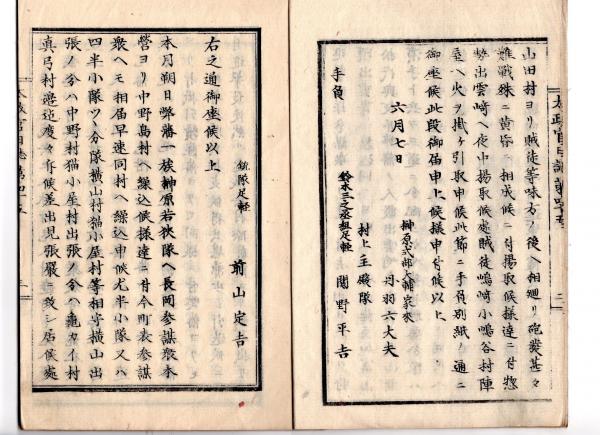 山田村ヨリ賊徒等味方ノ後ヘ相廻リ砲発甚々
難戦殊ニ黄昏ニ相成候ニ付揚取候様達ニ付惣
勢出雲崎ヘ夜中揚取候処賊徒嶋崎小嶋谷村陣
屋ヘ火ヲ掛ケ引取申候此節ニ手負別紙ノ通ニ
御座候此段御届申上候様申付候以上
六月七日
榊原式部大輔家来
丹羽六大夫
村上主殿隊
手負
鈴木三之丞組足軽
関野平吉
銃隊足軽
前山定吉
右之通御座候以上
本月朔日弊藩一族榊原若狭隊ヘ長岡参謀衆本
営ヨリ中野島村ヘ繰込候様達ニ付今町表参謀
衆ヘモ相届早速同村ヘ繰込申候尤半小隊又ハ
四半小隊ツヽ分隊横山村猫小屋村等相守横山出
張ノ分ハ中野村猫小屋村出張ノ分ハ亀カイ村
真弓村辺迄度々斥候差出見張厳ニ致シ居候処